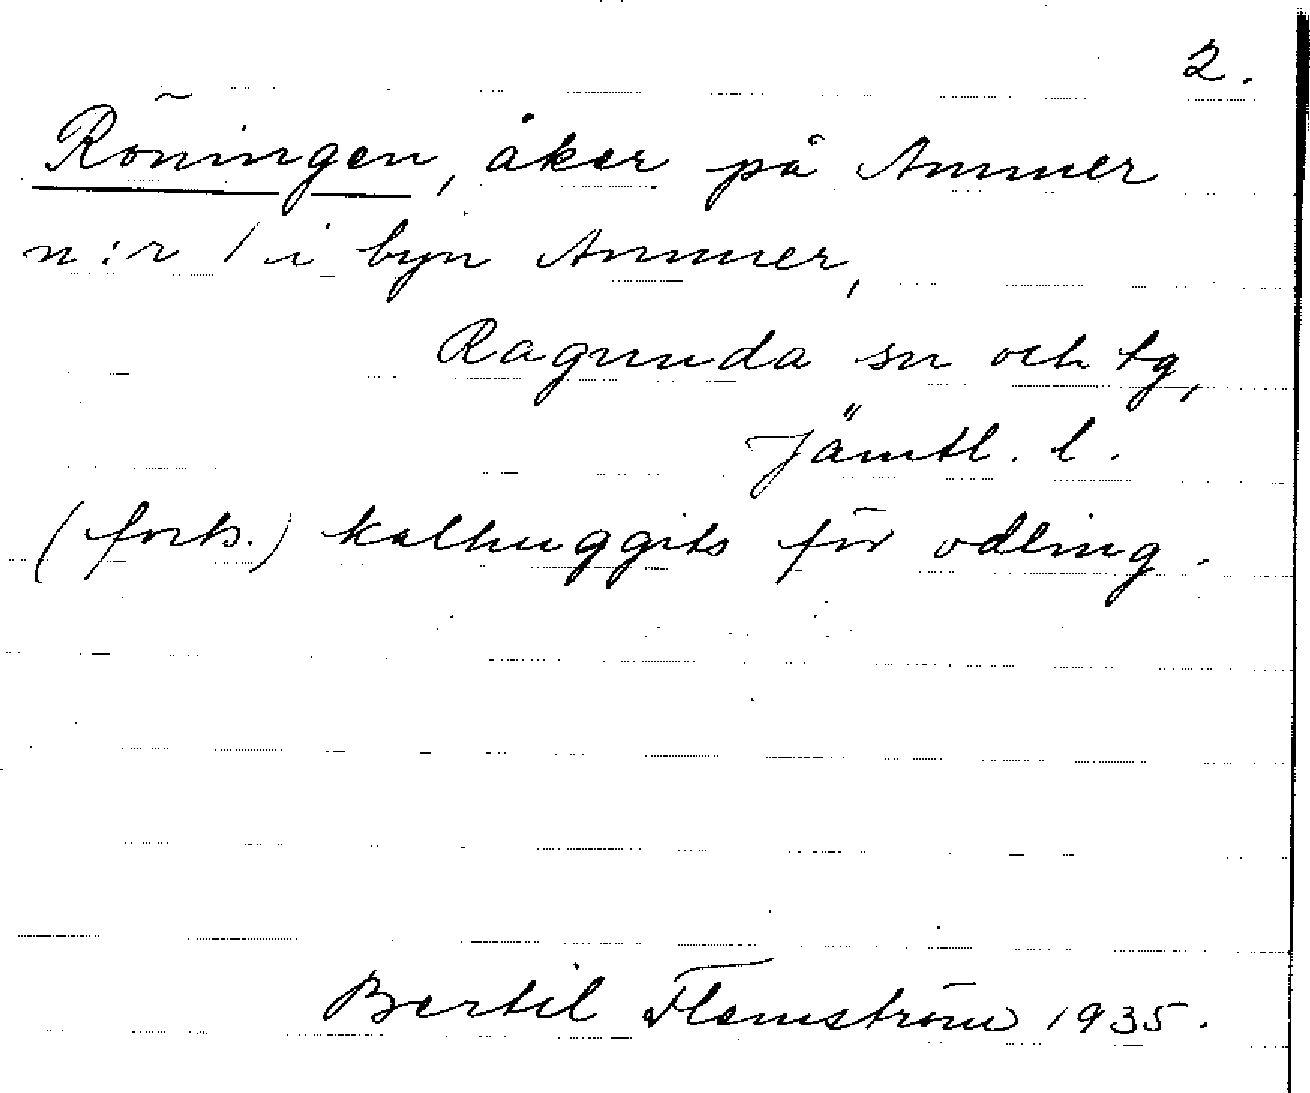 2.
Röningen, åker på Ammer
n:r 1 i byn Ammer,
Ragunda sn och tg,
Jämtl. l.
(forts.) kalhuggits för odling.
Bertil Flemström 1935.